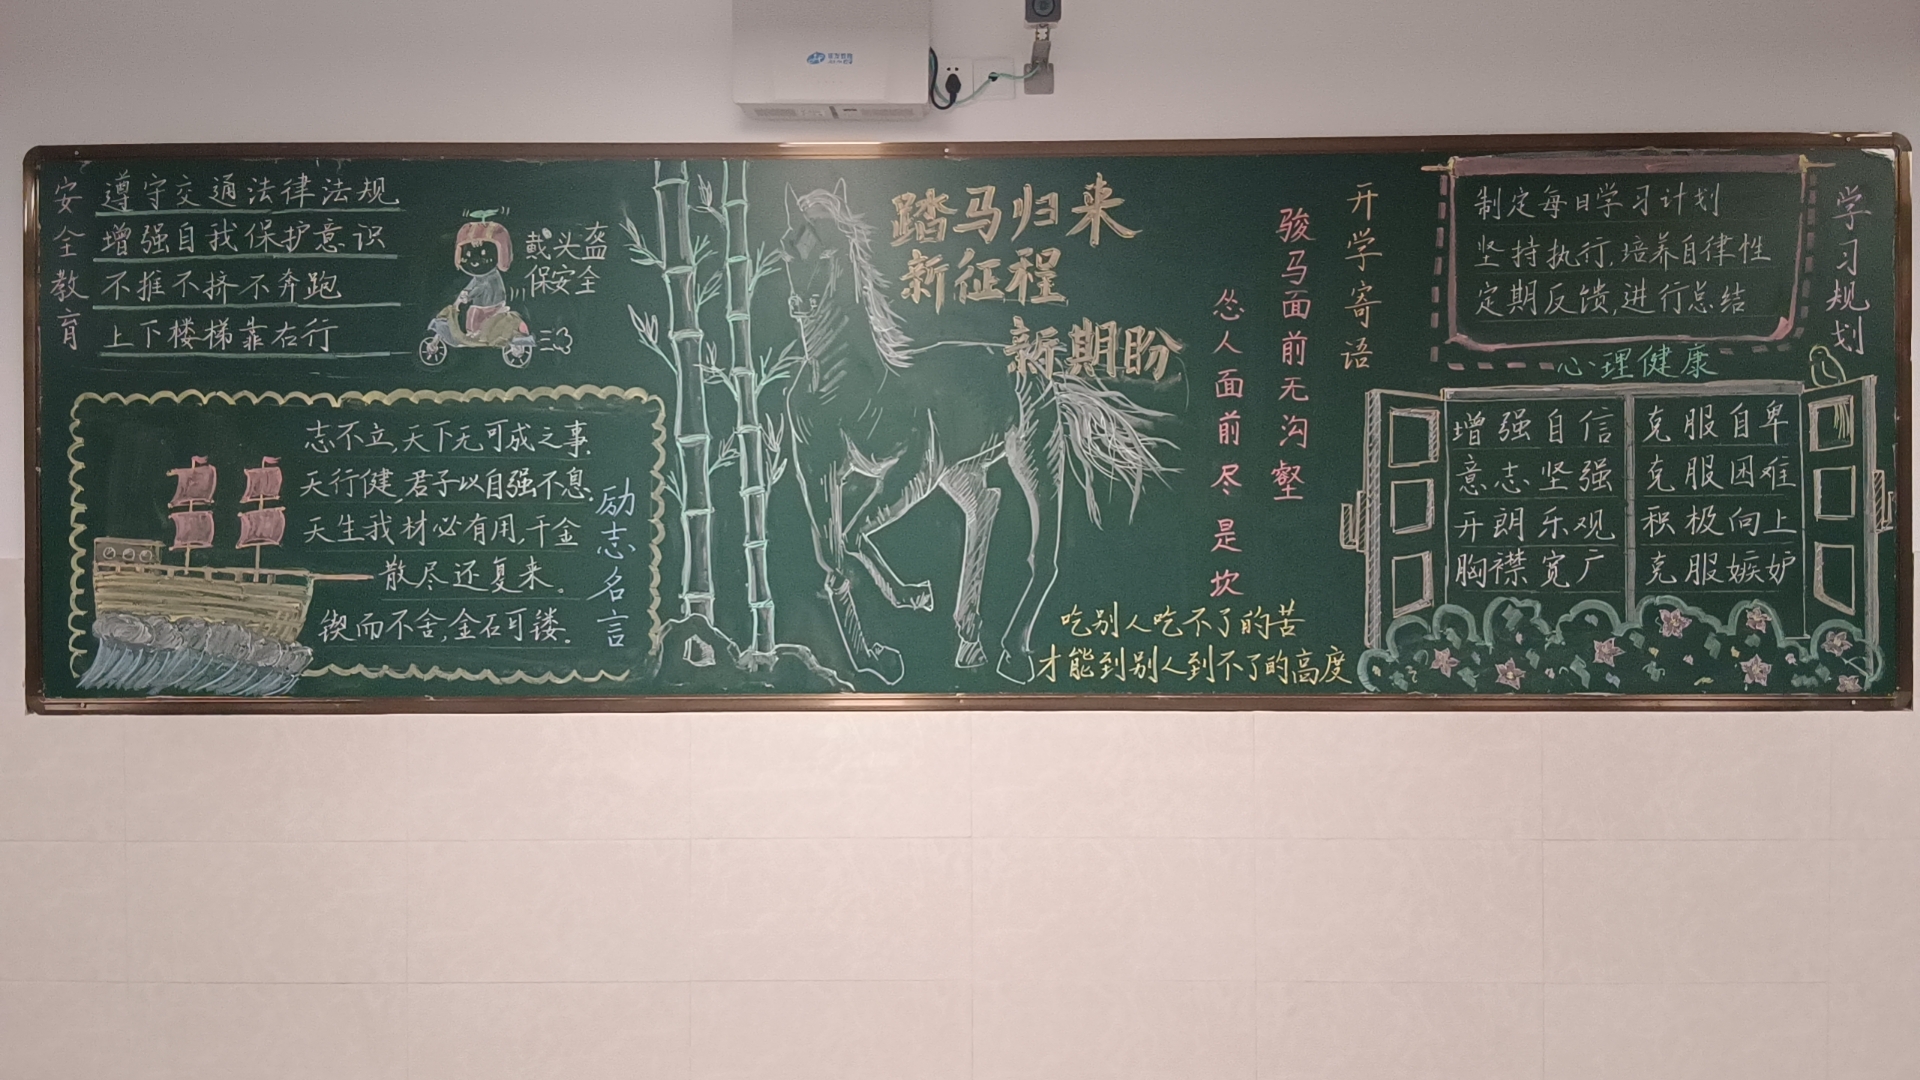 安全教育
遵守交通法律法规
增强自我保护意识
不推不挤不奔跑
上下楼梯靠右行
戴头盔
保安全
志不立,天下无可成之事.
天行健,君子以自强不息.
天生我材必有用,千金
散尽还复来.
锲而不舍,金石可镂.
励志名言
踏马归来
新征程
新期盼
开学寄语
骏马面前无沟壑
怂人面前尽是坎
吃别人吃不了的苦
才能到别人到不了的高度
学习规划
制定每日学习计划
坚持执行,培养自律性
定期反馈,进行总结
心理健康
增强自信
意志坚强
开朗乐观
胸襟宽广
克服自卑
克服困难
积极向上
克服嫉妒